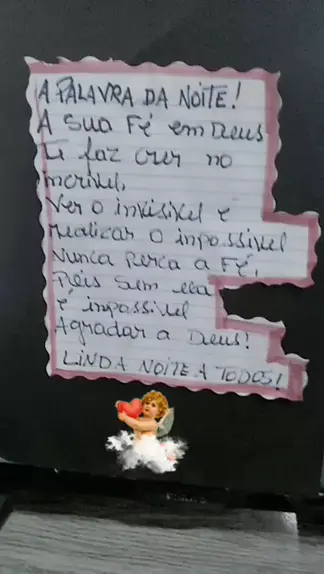 A PALAVRA DA NOITE!
A sua Fé em Deus
Te faz crer no
incrivel,
Ver o invisivel e
realizar o inpossivel
Nunca Perca a Fé,
Pois Sem ela
é impossivel
Agradar a Deus!
LINDA NOITE A TODOS!